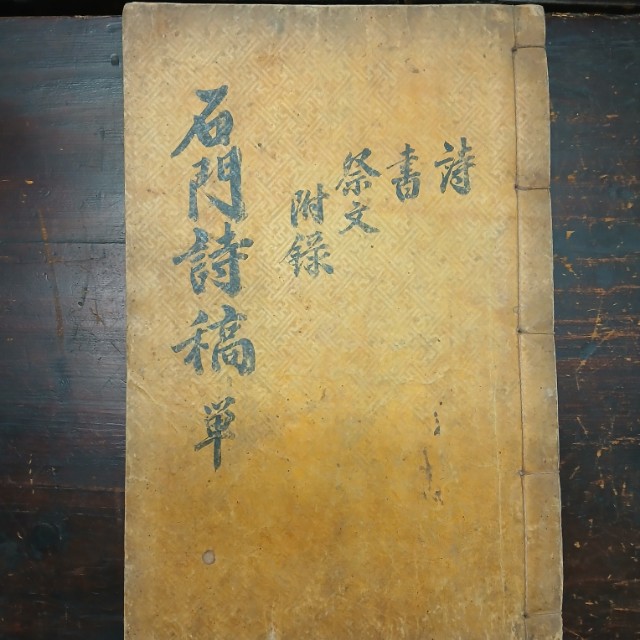 詩
書
祭文
附錄
石門詩稿 単